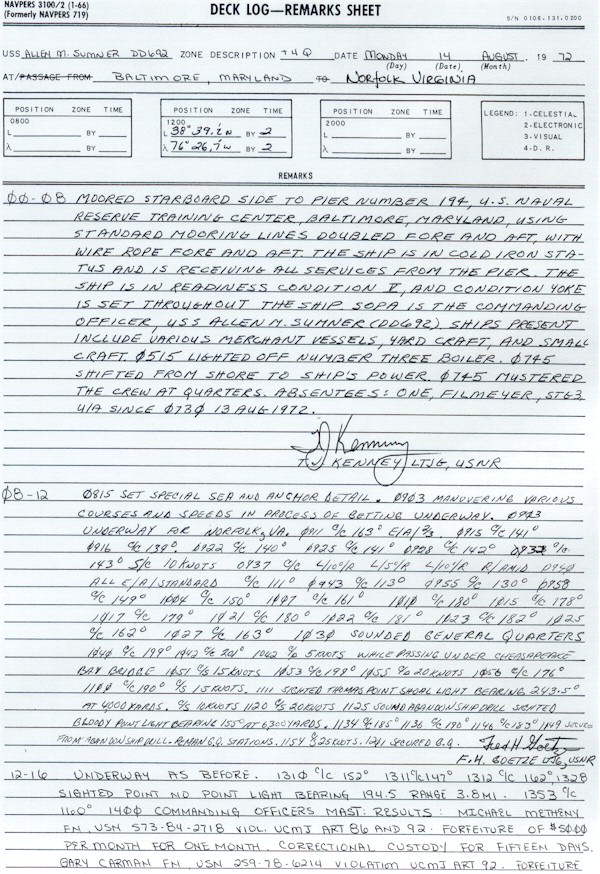 NAVPERS 3100/2 (1-66)
(Formerly NAVPERS 719)
DECK LOG—REMARKS SHEET
S/N 0106.131.0200
USS ALLEN M. SUMNER DD692 ZONE DESCRIPTION +4 Q DATE MONDAY 14 AUGUST, 19 72
(Day) (Date) (Month)
AT/PASSAGE FROM BALTIMORE, MARYLAND TO NORFOLK VIRGINIA
POSITION ZONE TIME
0800
L BY
λ BY
POSITION ZONE TIME
1200
L 38° 39.2'N BY 2
λ 76° 26.7'W BY 2
POSITION ZONE TIME
2000
L BY
λ BY
LEGEND: 1-CELESTIAL
2-ELECTRONIC
3-VISUAL
4-D. R.
REMARKS
00-08 MOORED STARBOARD SIDE TO PIER NUMBER 194, U.S. NAVAL
RESERVE TRAINING CENTER, BALTIMORE, MARYLAND, USING
STANDARD MOORING LINES DOUBLED FORE AND AFT, WITH
WIRE ROPE FORE AND AFT. THE SHIP IS IN COLD IRON STA-
TUS AND IS RECEIVING ALL SERVICES FROM THE PIER. THE
SHIP IS IN READINESS CONDITION V, AND CONDITION YOKE
IS SET THROUGHOUT THE SHIP. SOPA IS THE COMMANDING
OFFICER, USS ALLEN M. SUMNER (DD692) SHIPS PRESENT
INCLUDE VARIOUS MERCHANT VESSELS, YARD CRAFT, AND SMALL
CRAFT. 0515 LIGHTED OFF NUMBER THREE BOILER. 0745
SHIFTED FROM SHORE TO SHIP'S POWER. 0745 MUSTERED
THE CREW AT QUARTERS. ABSENTEES: ONE, FILMEYER, STG3
U/A SINCE 0730 13 AUG 1972.
KENNEY LTJG, USNR
08-12 0815 SET SPECIAL SEA AND ANCHOR DETAIL. 0903 MANUVERING VARIOUS
COURSES AND SPEEDS IN PROCESS OF GETTING UNDERWAY. 0903
UNDERWAY FOR NORFOLK, VA. 0911 C/C 163° E/A/⅔. 0915 C/C 141°
0916 C/C 139°. 0922 C/C 140° 0925 C/C 141° 0928 C/C 142° C/C
143° S/C 10 KNOTS 0937 C/C L/10°R L/5°R L/10°R R/AMID 0940
ALL E/A/STANDARD C/C 111° 0943 C/C 113° 0955 C/C 130° 0958
C/C 149° 1004 C/C 150° 1007 C/C 161° 1010 C/C 180° 1015 C/C 178°
1017 C/C 179° 1021 C/C 180° 1022 C/C 181° 1023 C/C 182° 1025
C/C 162° 1027 C/C 163° 1030 SOUNDED GENERAL QUARTERS
1040 C/C 199° 1042 C/C 201° 1042 C/S 5 KNOTS WHILE PASSING UNDER CHEASAPEAKE
BAY BRIDGE 1051 C/S 15 KNOTS 1053 C/C 198° 1055 C/S 20 KNOTS 1056 C/C 176°
1100 C/C 190° C/S 15 KNOTS. 1111 SIGHTED THOMAS POINT SHOAL LIGHT BEARING 243.5°
AT 4000 YARDS. C/S 10 KNOTS 1120 C/S 20 KNOTS 1125 SOUND ABANDON SHIP DRILL SIGHTED
BLOODY POINT LIGHT BEARING 155° AT 6300 YARDS. 1134 C/C 185° 1136 C/C 190° 1146 C/C 183° 1149 SECURED
FROM ABANDON SHIP DRILL. REMAIN G.Q. STATIONS. 1154 C/S 25 KNOTS. 1201 SECURED G.Q.
Fred H Goetz
F. H. GOETZE LTJG, USNR
12-16 UNDERWAY AS BEFORE. 1310 C/C 152° 1311 C/C 147° 1312 C/C 162°, 1328
SIGHTED POINT NO POINT LIGHT BEARING 194.5 RANGE 3.8 MI. 1353 C/C
160° 1400 COMMANDING OFFICERS MAST: RESULTS: MICHAEL METHENY
FN, USN 573-84-2718 VIOL. UCMJ ART 86 AND 92. FORFEITURE OF $50.00
PER MONTH FOR ONE MONTH. CORRECTIONAL CUSTODY FOR FIFTEEN DAYS.
GARY CARMAN FN USN 259-78-6214 VIOLATION UCMJ ART 92. FORFEITURE